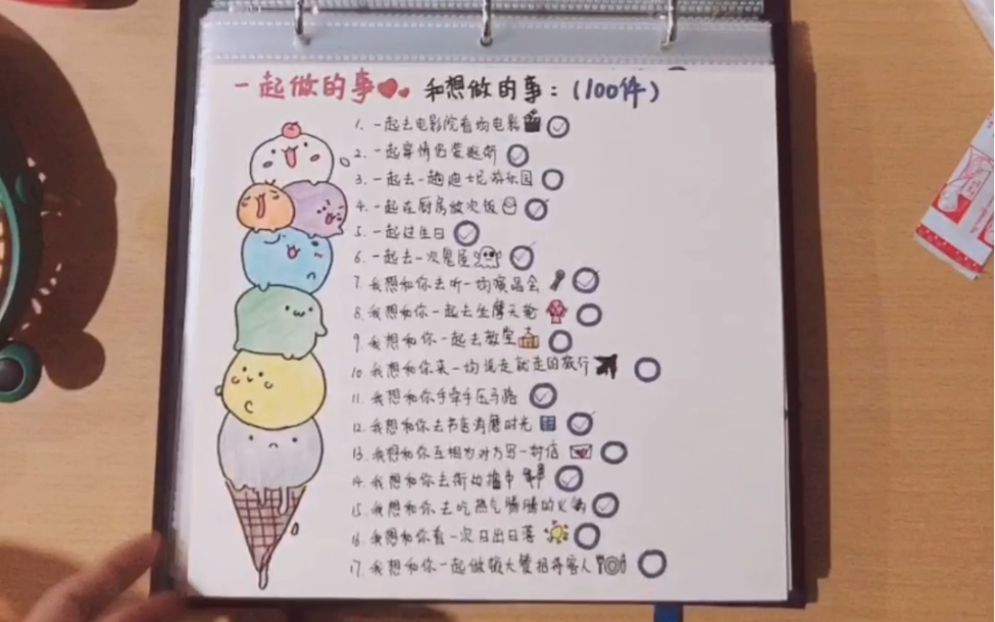 一起做的事 和想做的事：（100件）
1. 一起去电影院看场电影
2. 一起穿情侣装逛街
3. 一起去一趟迪士尼游乐园
4. 一起在厨房做次饭
5. 一起过生日
6. 一起去一次鬼屋
7. 我想和你去听一场演唱会
8. 我想和你一起去坐摩天轮
9. 我想和你一起去教堂
10. 我想和你来一场说走就走的旅行
11. 我想和你手牵手压马路
12. 我想和你去书店消磨时光
13. 我想和你互相为对方写一封信
14. 我想和你去街边撸串
15. 我想和你去吃热气腾腾的火锅
16. 我想和你看一次日出日落
17. 我想和你一起做顿大餐招待客人